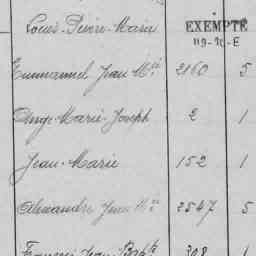 Louis Désiré Marie EXEMPTÉ
119-2C-E
Emmanuel Jean Mie 2160 5
Ange Marie Joseph 2 1
Jean Marie 152 1
Alexandre Jean Mie 2547 5
François Jean Bapte 308 1